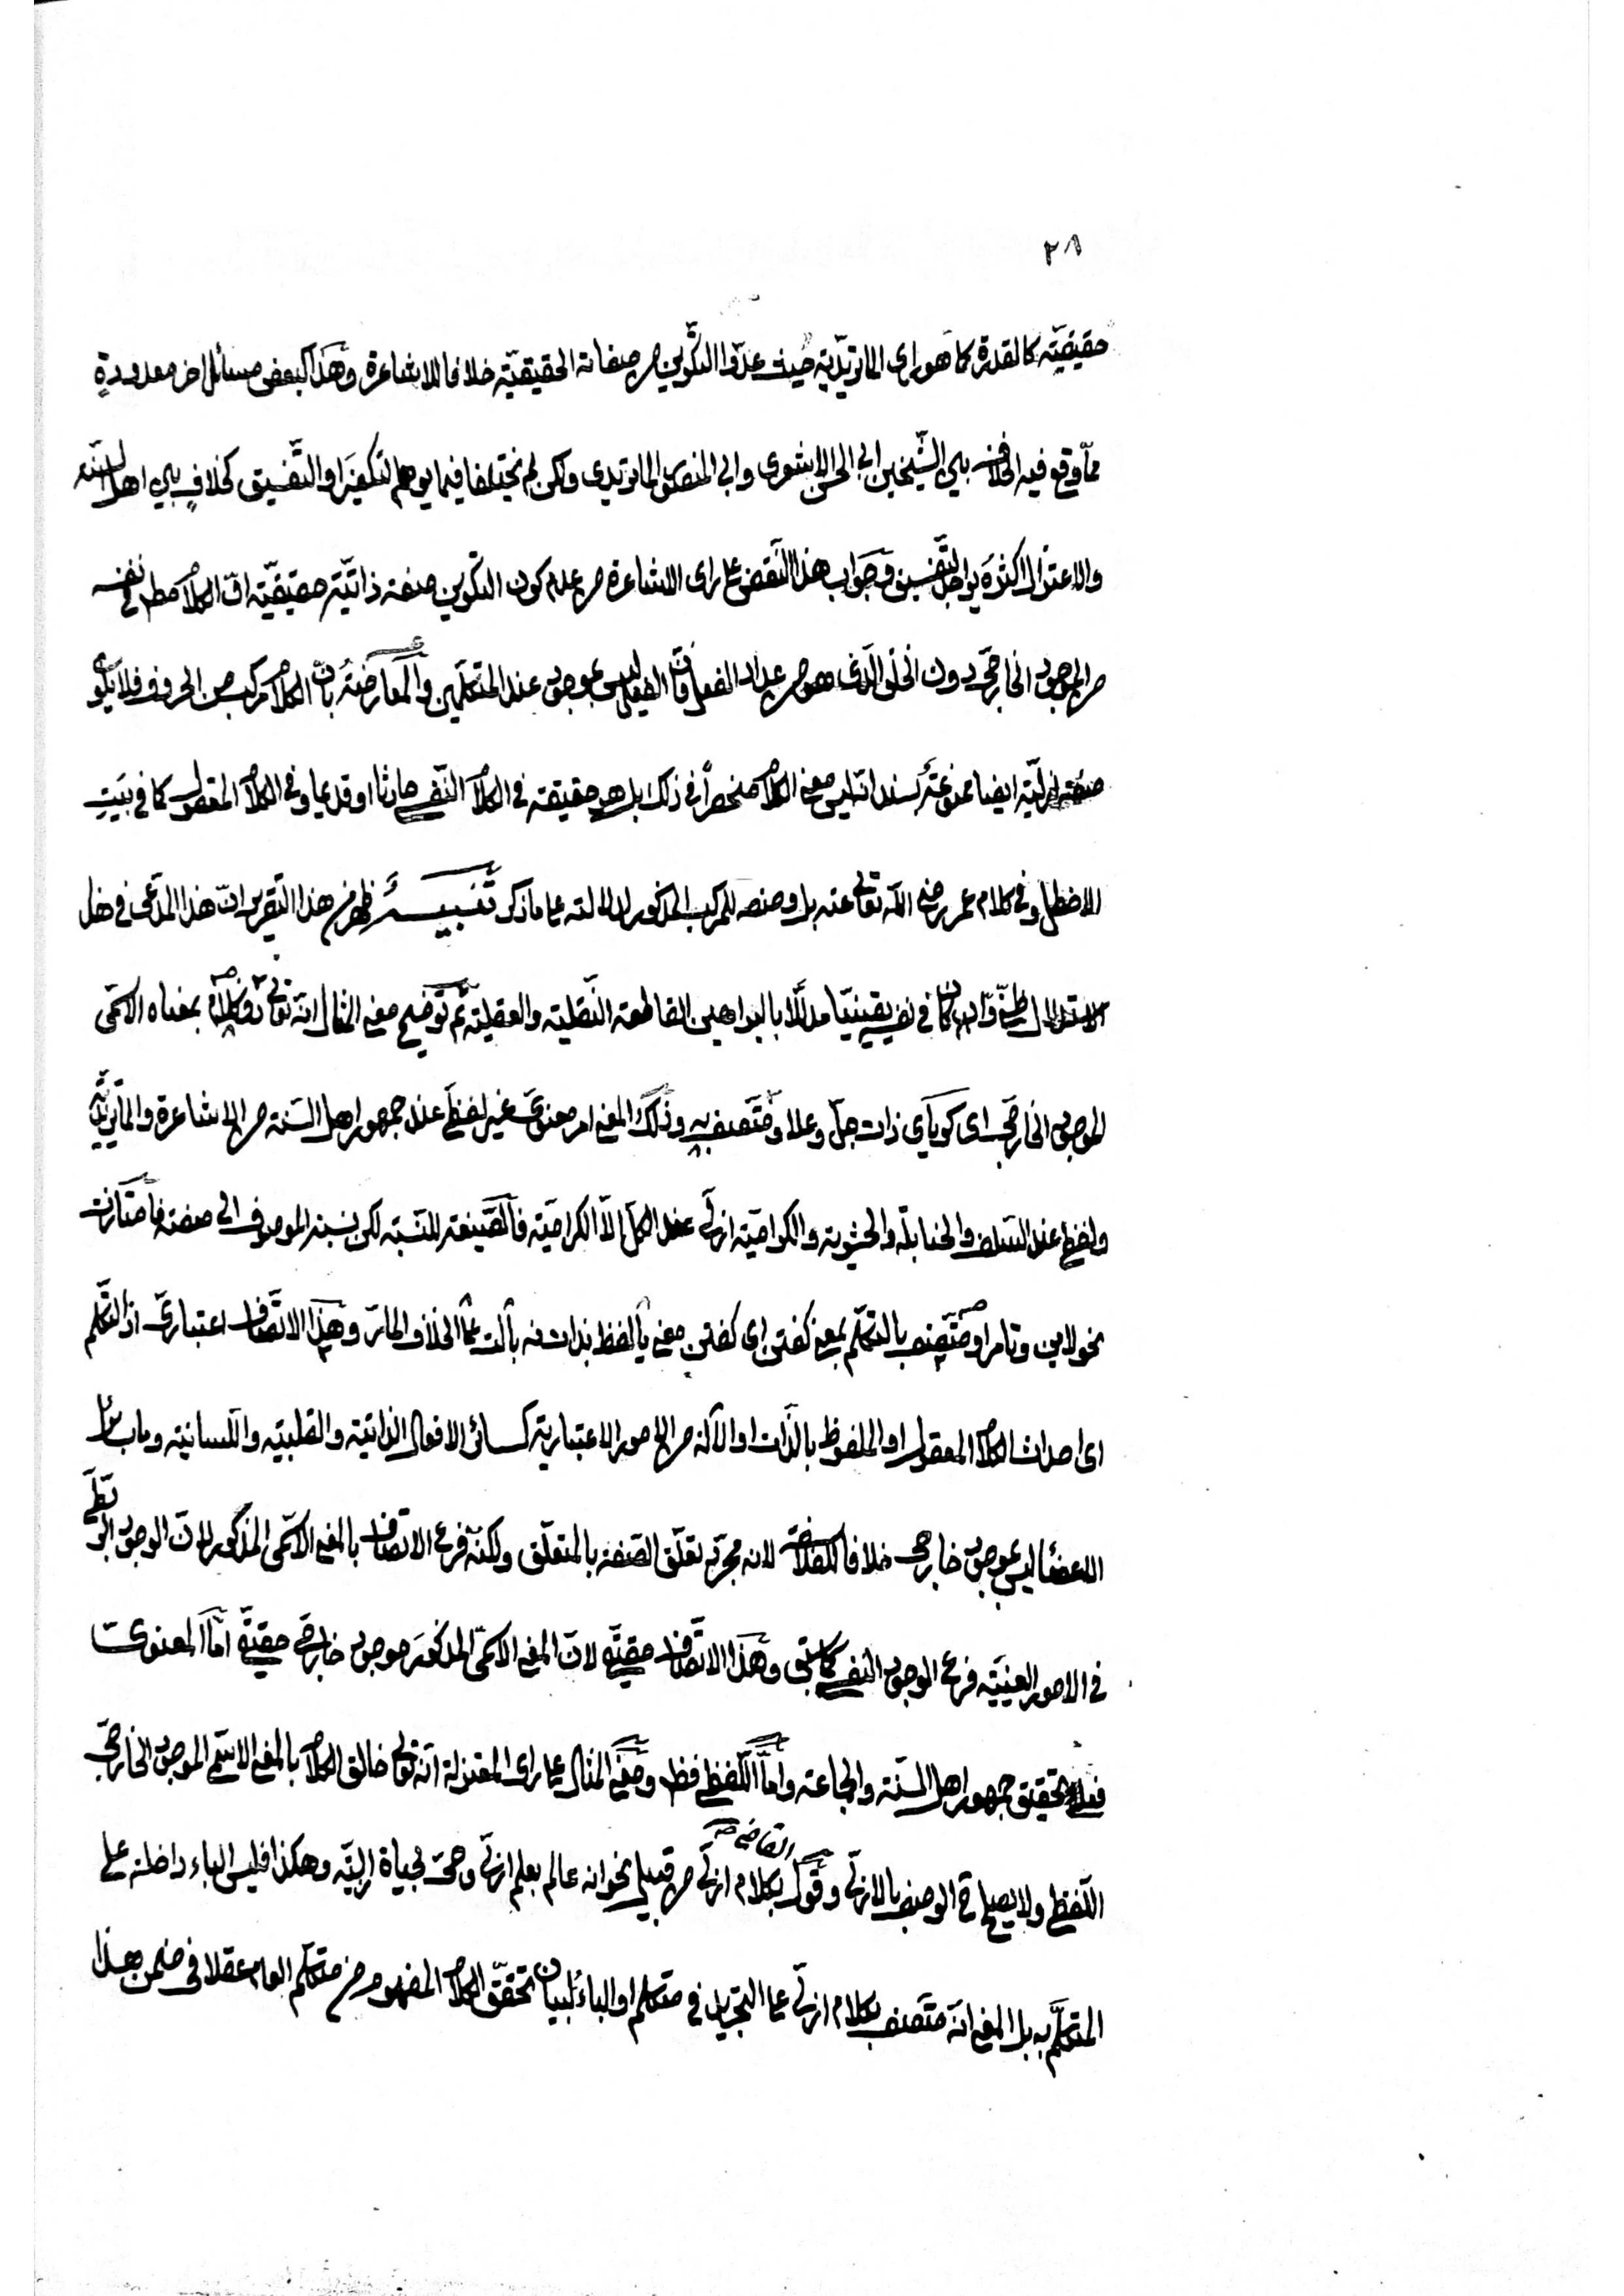 ٢٨
حقيقيّة كالقدرة كما هو راى الماتريديّة حيث عدّوا التكوين من صفاته الحقيقيّة خلافا للاشاعرة وهذا كبعض مسائل اخر معدودة
ممّا وقع فيه الخلاف بين الشّيخين ابى الحسن الاشعرى وابى المنصور الماتريدى ولكن لم يختلفا فيما يوهم التكفير او التّفسيق كخلاف بين اهل السنة
والاعتزال اكثره يوجب التّفسيق وجواب هذا النّقض على راى الاشاعرة من عدم كون التكوين صفة ذاتيّة حقيقيّة انّ الكلام مط فى نفسه
من الموجود الخارجى دون الخلق الّذى هو من عداد الفعل فان الفعل ليس بموجود عند المتكلّمين والمعارضة بانّ الكلام مركب من الحروف فلا يكون
صفة ازليّة ايضا ممنوعة بسند انّه ليس معنى الكلام منحصراً فى ذلك بل هو حقيقة فى الكلام النّفسى حادثا او قديما وفى الكلام المعقول كما فى بيت
الاخطل وفى كلام عمر رضى اللّه تعالى عنه بل وضعه للمركب المذكور لدلالته على ما ذكر تنبيه ظهر من هذا التقرير انّ هذا المدّعى فى هذا
الاستدلال ظنّى وان كان فى نفسه يقينيّا مدلّلا بالبراهين القاطعة النّقلية والعقليّة ثم توضيح معنى المثال انّه تعالى ذو كلام بمعناه الاسمى
الموجود الخارجى اى كوياى ذات جلّ وعلا ومتّصف به وذلك المعنى امر معنوى غير لفظى عند جمهور اهل السّنة من الاشاعرة والماتريديّة
ولفظى عند السّلف والحنابلة والحشوية والكرامية ازلى عند الكلّ الاّ الكراميّة فالصّيغة للنّسبة لكن نسبة الموصوف الى صفته فامتازت
نحو لابن وتامر او متّصف بالتكلّم بمعنى كفتن اى كفتن معنى يا لفظ بذات نه بآلت على الخلاف المارّ وهذا الاتّصاف اعتبارىّ اذ التّكلم
اى احداث الكلام المعقول او الملفوظ بالذّات او الآلة من الامور الاعتبارية كسائر الافعال الذاتية والقلبيّة واللّسانية وما بسائر
الاعضاء ليس بموجود خارجى خلافا للفلاسفة لانه مجرّد تعلّق الصّفة بالمتعلّق ولكنّه فرع الاتّصاف بالمعنى الاسمى المذكور لانّ الوجود الرّابطىّ
فى الامور العينيّة فرع الوجود النفسى كما سبق وهذا الاتّصاف حقيقىّ لانّ المعنى الاسمىّ المذكور موجود خارجى حقيقىّ امّا المعنوى
فعلى تحقيق جمهور اهل السنّة والجماعة وامّا اللّفظى فظ ومعنى المثال على راى المعتزلة انّه تعالى خالق الكلام بالمعنى الاسمى الموجود الخارجى
اللّفظى ولا يصلح ح الوصف بالازلى وقول القاضى بكلام ازلى من قبيل نحو انه عالم بعلم ازلى وحىّ بحياة ازليّة وهكذا فليس الباء داخلة على
المتكلّم به بل المعنى انّه متّصف بكلام ازلى على التجريد فى متكلم او الباء لبيان تحقّق الكلام المفهوم من متكلّم العام عقلا فى ضمن هذا